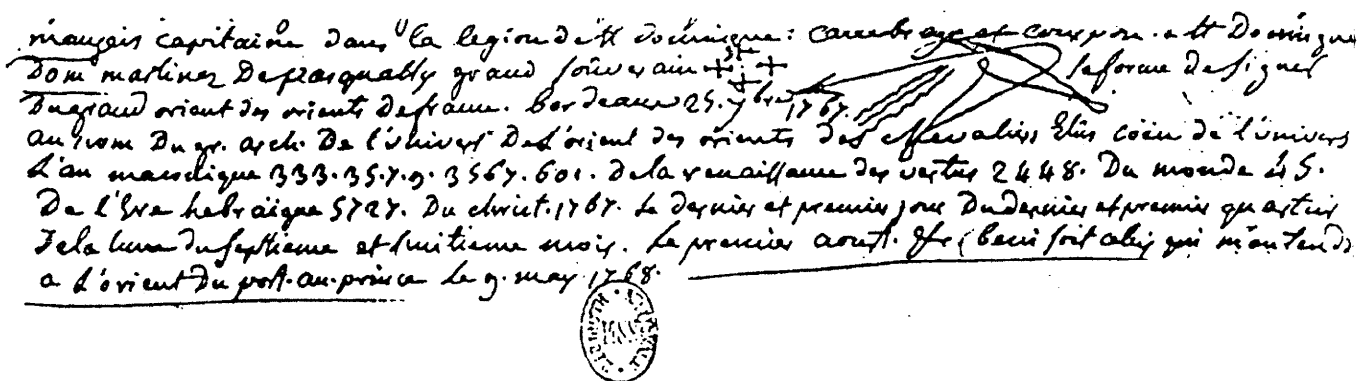 capitaine dans la legion de St domingue: et St Domingue
Dom martinez Depasqually grand souverain sa forme de signer
Du grand orient des orients de france. bordeaux 25. 7bre 1767.
au nom Du gr. arch. De l'univers De L'orient des orients des chevaliers Elus coën de l'univers
L'an 333. 35. 7. 9. 3567. 601. De la renaissance des vertus 2448. Du monde 45.
De l'Ere hebraique 5727. Du christ. 1767. Le dernier et premier jour Du dernier et premier quartier
De la lune du septieme et huitieme mois. Le premier aout. &c (beni soit celuy qui m'entend)
a L'orient Du port-au-prince Le 9. may 1768.